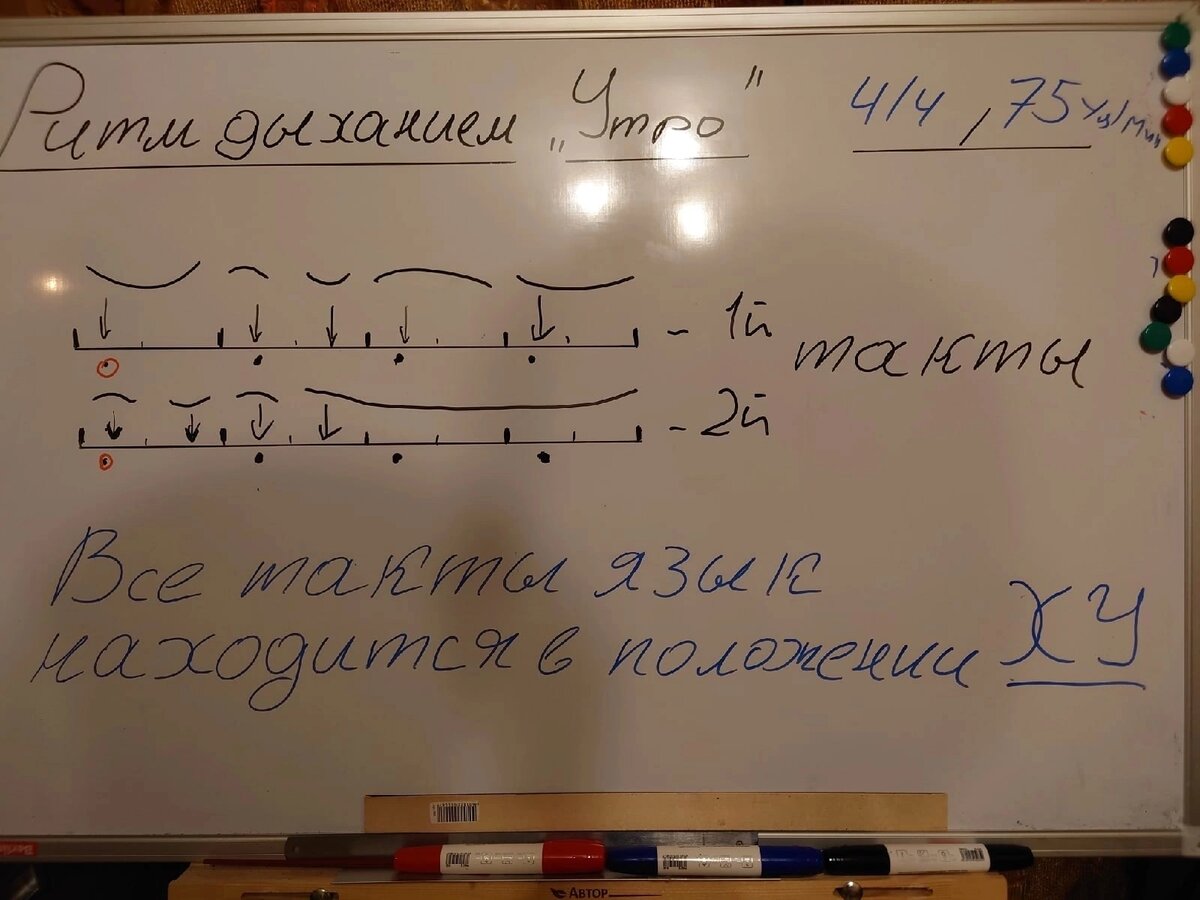 Ритм дыханием „Утро" 4/4, 75 Уд/Мин
- 1й
такты
- 2й
Все такты язык
находится в положении ХУ
АВТОР
Berlin